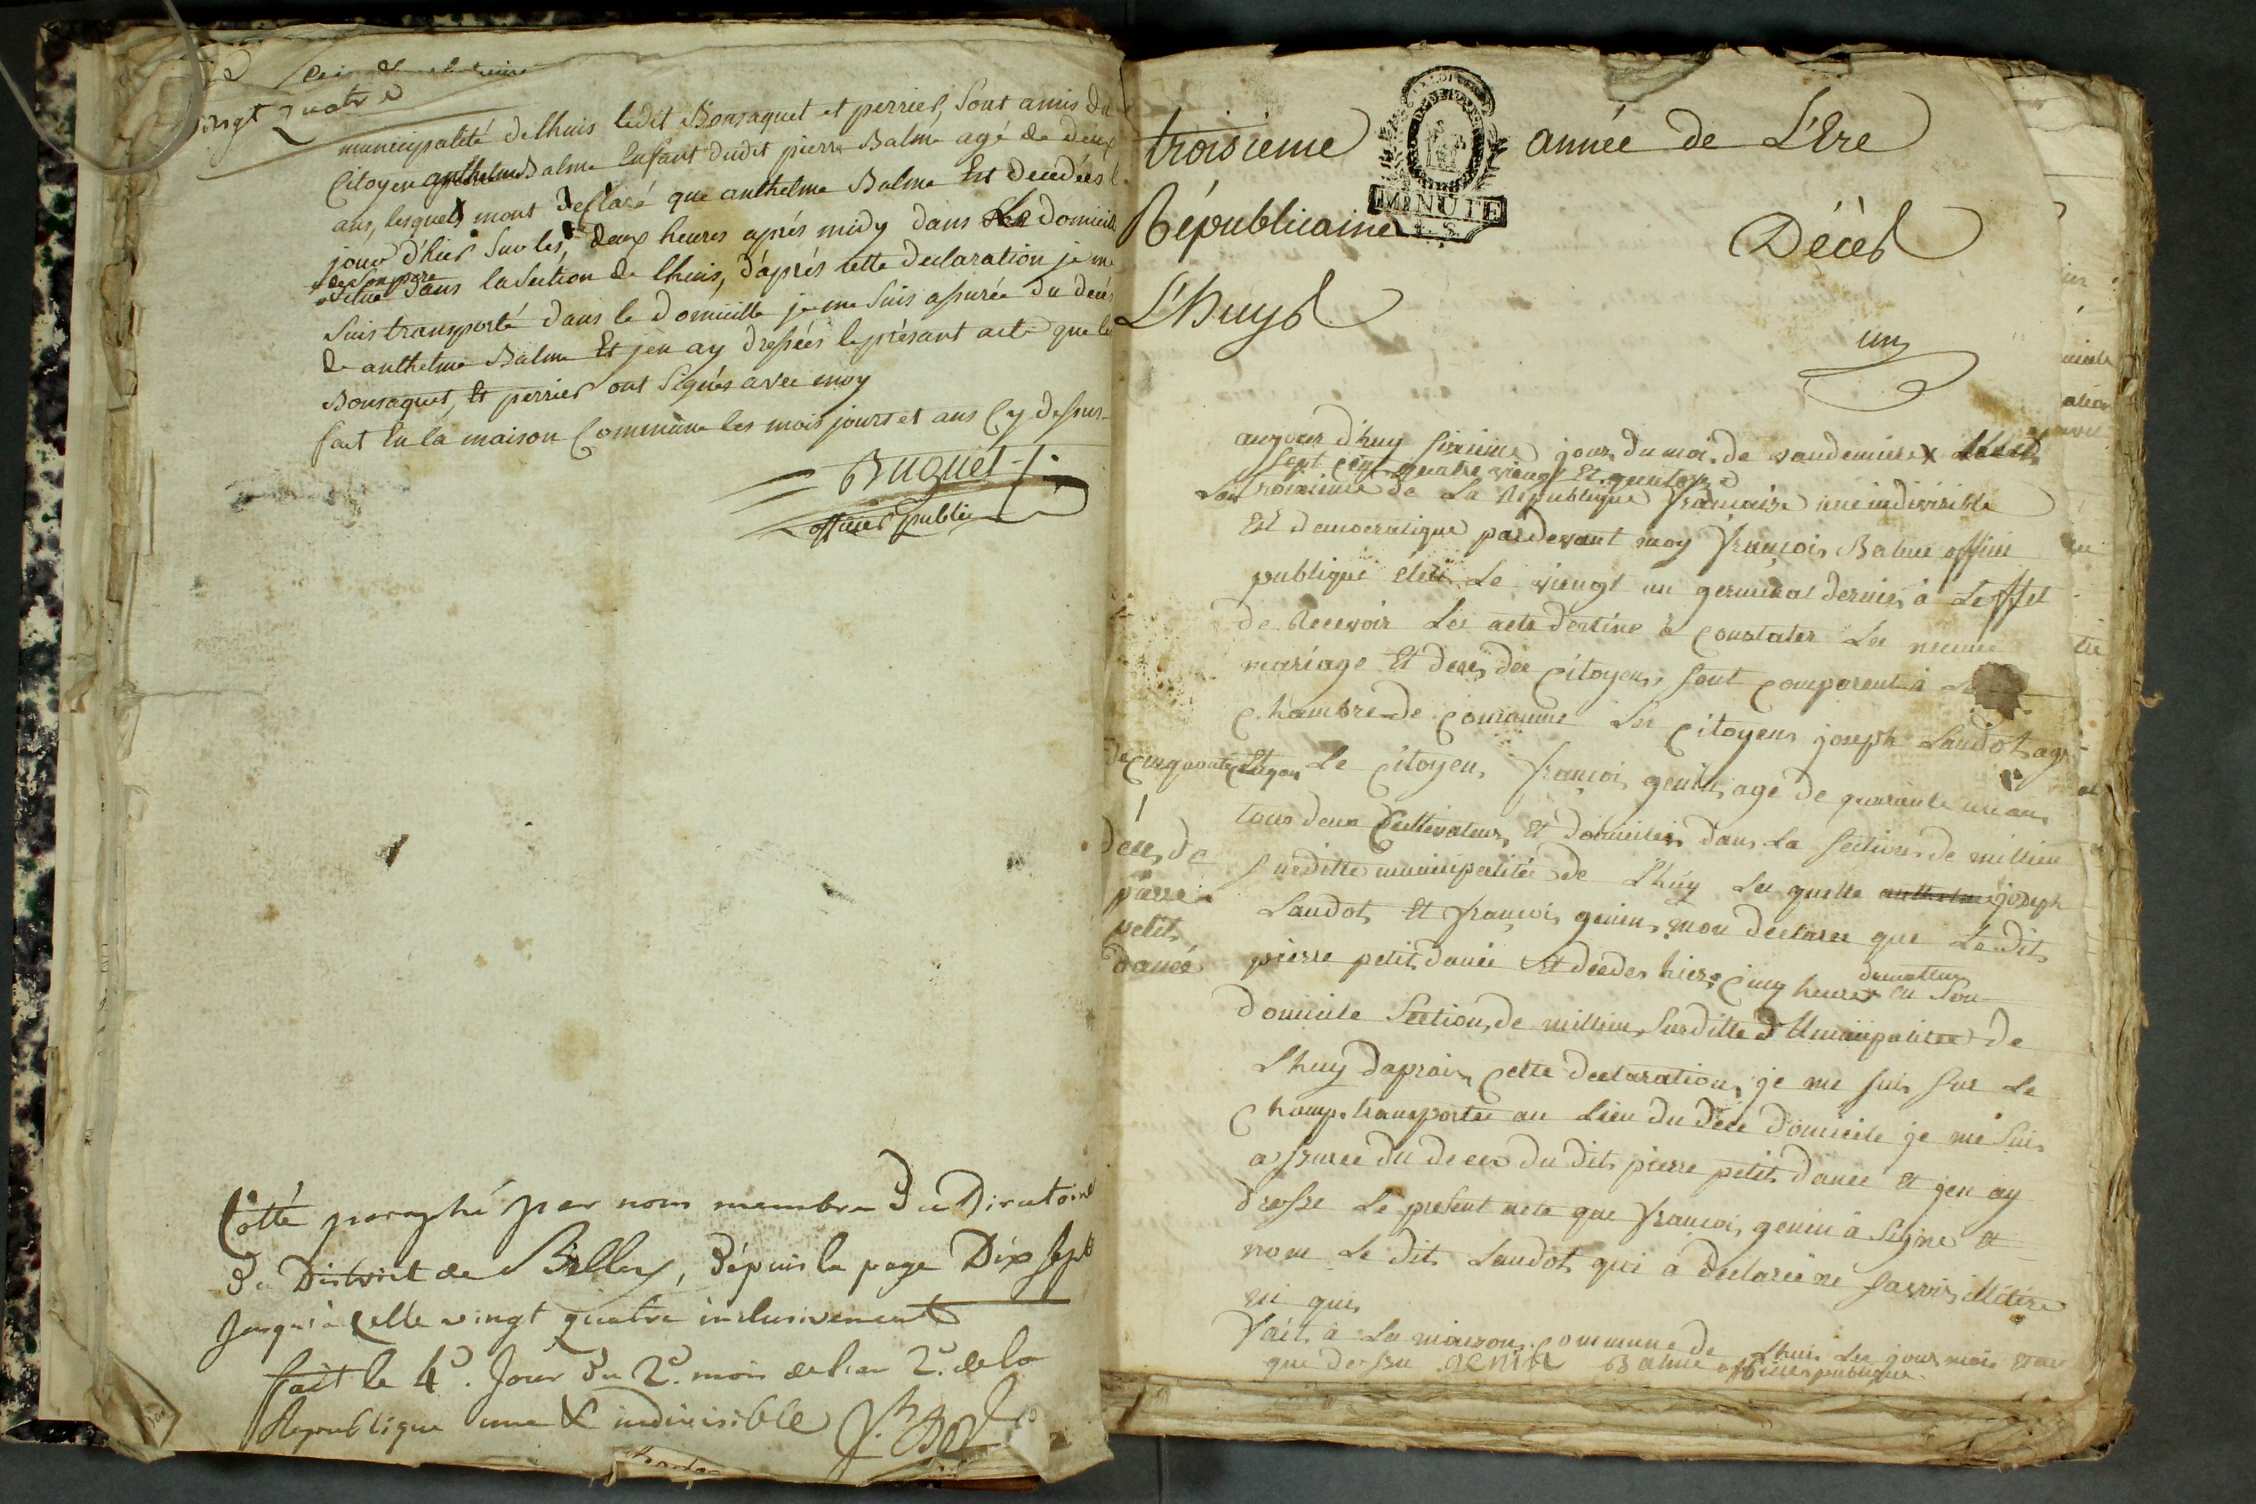 vingt quatre
municipalité de lhuis ledit Bonsaquet et perrier, sont amis du
Citoyen anthelme Balme Enfant dudit pierre Balme agé de deux
ans, lesquels mont declaré que anthelme Balme Est decedées l
jour d'hier sur les deux heures aprés midy dans le domicile
de son pere
situé dans la Section de lhuis, d'aprés cette declaration je me
suis transporté dans le domicille je me suis assurée du decés
de anthelme Balme Et jen ay dressées le présant acte que le
Bonsaquet, Et perrier ont signés avec moy
fait En la maison Commune les mois jours et ans Cy dessus
Buguet
officier public
Cotté paraphé par nous membre du Directoire
du District de Belley, dépuis la page Dix sept
Jusqu'à celle vingt quatre inclusivement
fait le 4e. Jour du 2e. mois de l'an 2e. de la
Republique une & indivisible
troisieme année de L'Ere
MINUTE
Républicaine
Décès
L'huys
un
aujour d'huy sixieme jour du moi de vandemiere
sept cent quatre viengt Et quatorze
Lan troisieme de La République francaise une indivisible
Et democratique pardevant moy francois Balme officié
publique éleu Le viengt un germinal dernier à Leffet
de Recevoir Les acte destiné à constater Les
mariage Et deces des Citoyens sont comparent à La
Chambre de comunne Les Citoyens joseph Laudot age
de cinquante Et Le Citoyen francois genin age de quarante un ans
tous deux Cultivateurs Et domicilier dans La section de millieu
susditte municipalitée de L'huy Les quelle anthelme joseph
Laudot Et francois genin mon declarée que Le dit
décès de
pierre
petit
danée
pierre petit danée Et decedes hier Cinq heures du matin en son
domicile section de millieu susditte Municipalitee de
Lhuy dapraix Cette declaration je me suis sur Le
Champ transportee au Lieu du dece domicile je me suis
assuree du deces du dit pierre petit danée Et jen ay
dresse Le present acte que francois genin à signe Et
non Le dit Laudot qui à declarée ne savoir
fait à La maison commune de Lhuis Les jour mois Et an
que dessu genin Balme officier publique